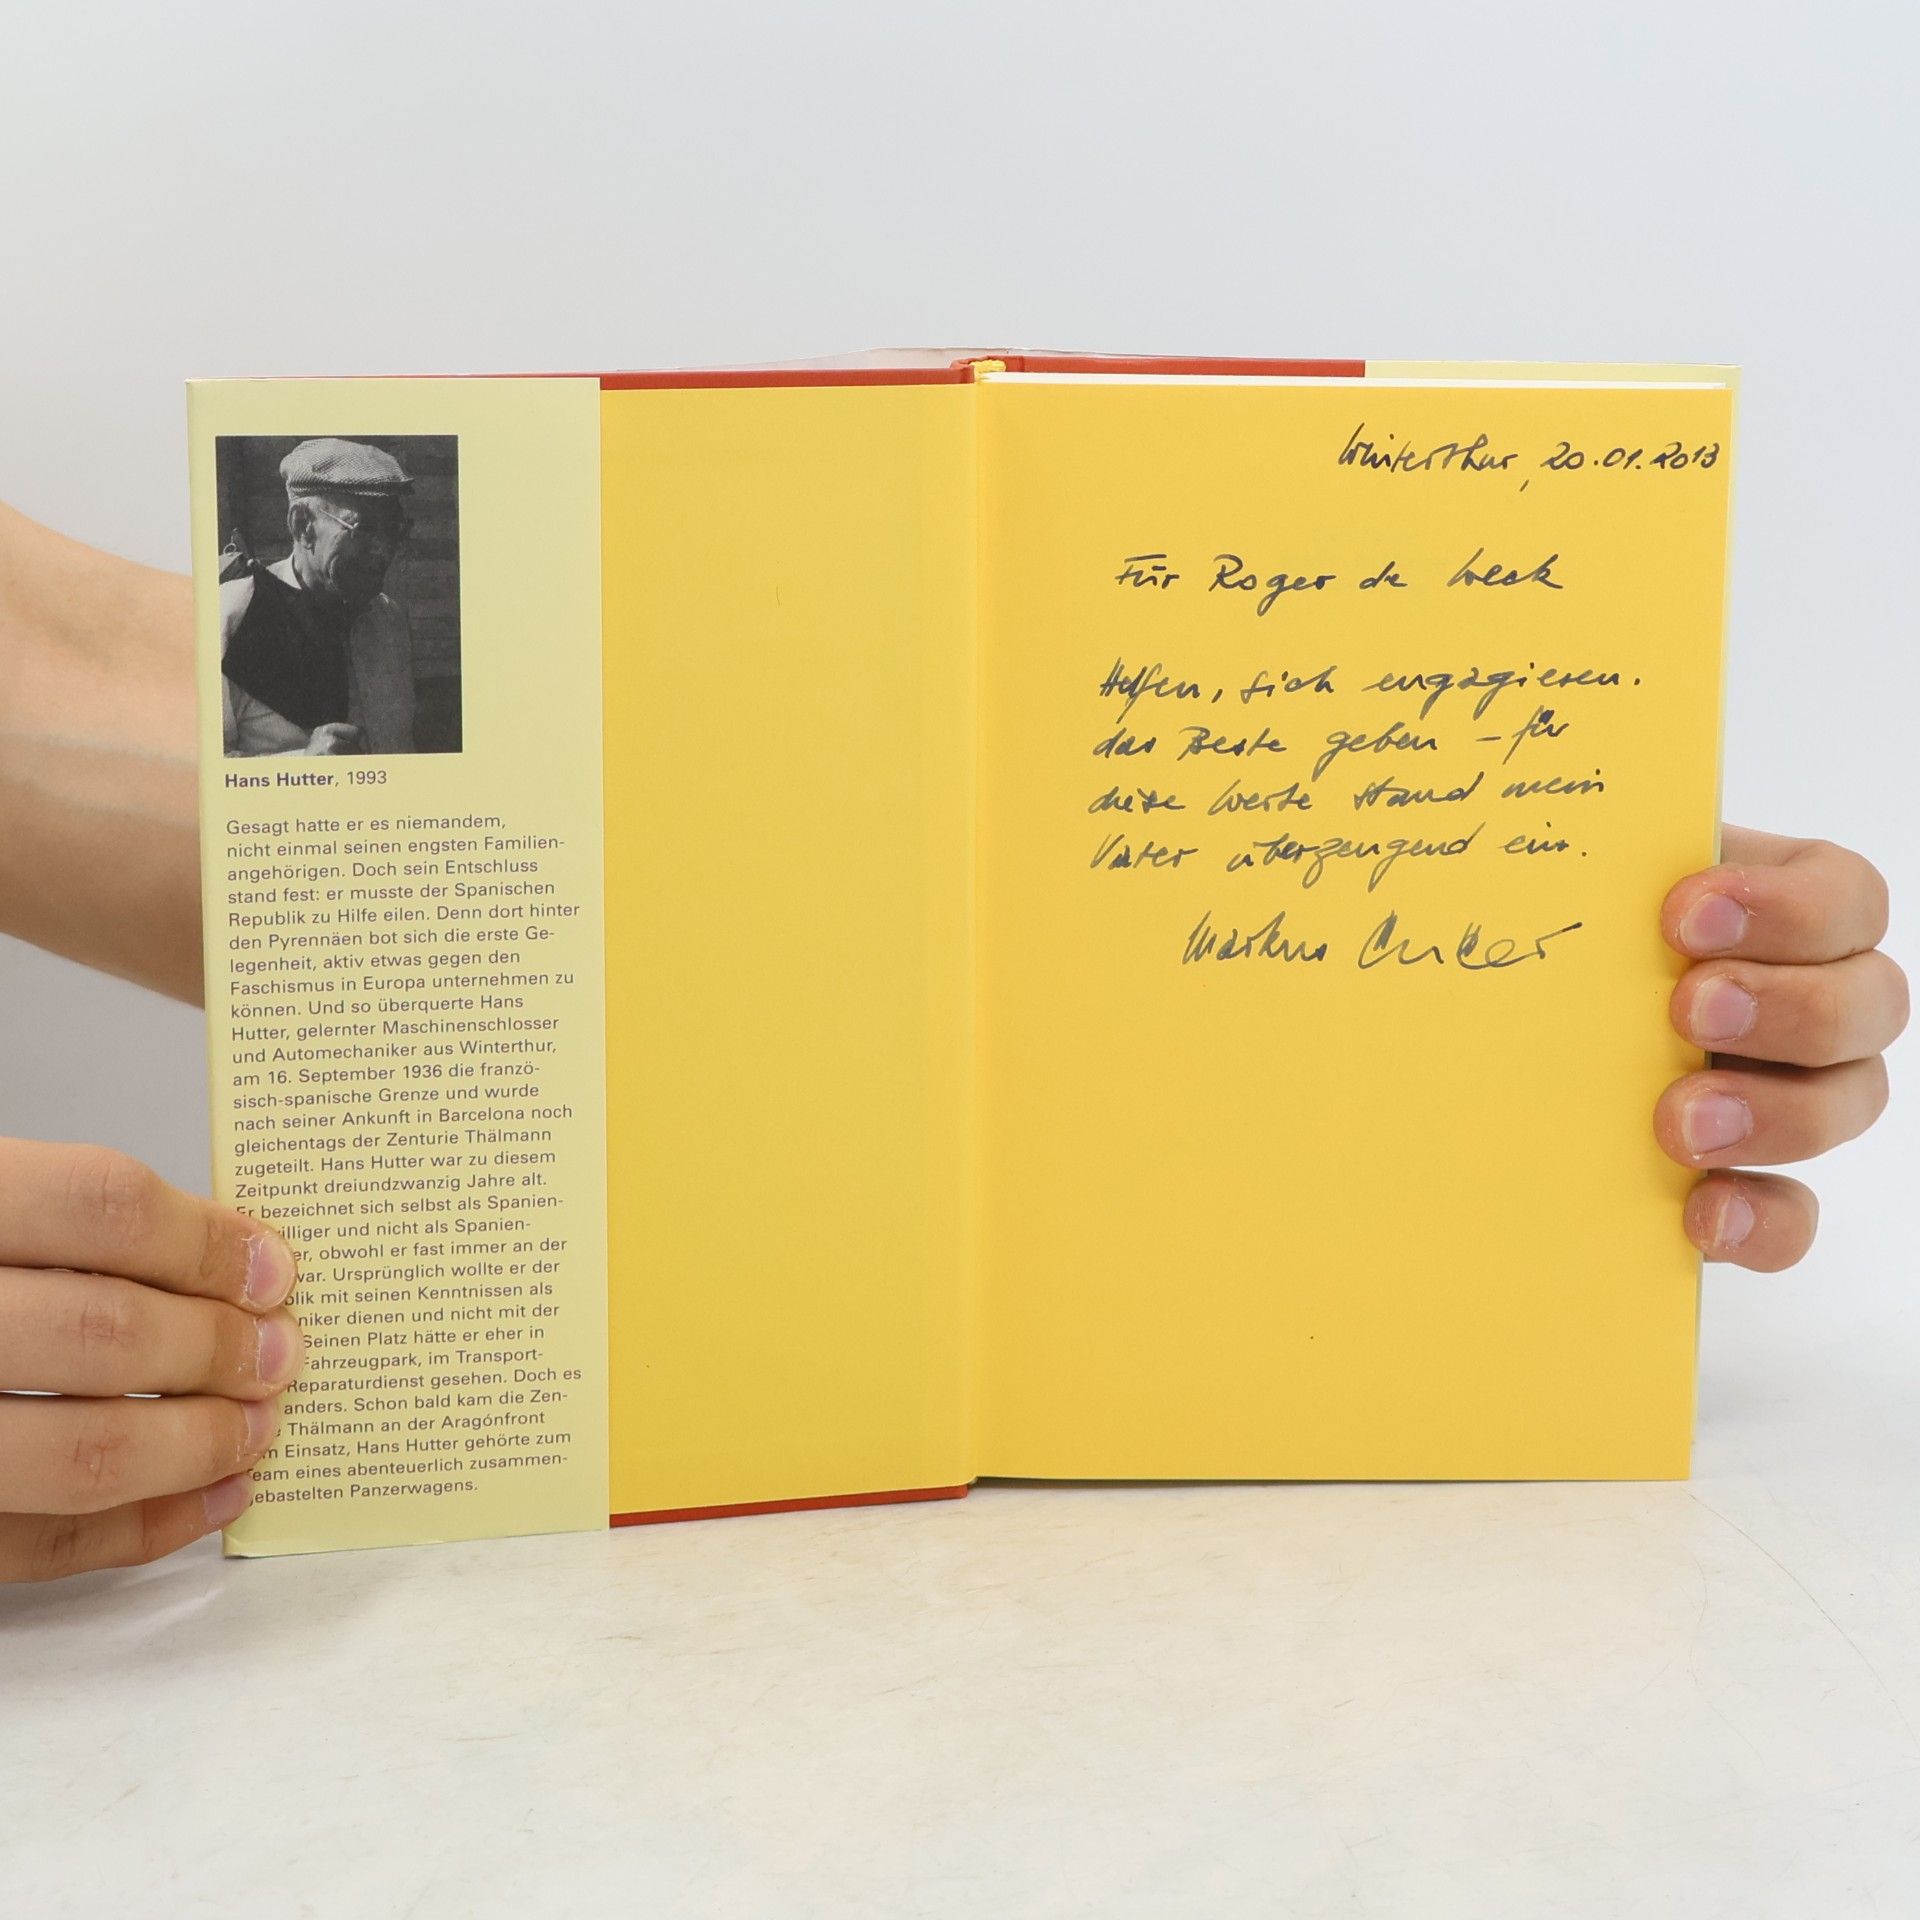 Hans Hutter, 1993
Gesagt hatte er es niemandem,
nicht einmal seinen engsten Familien-
angehörigen. Doch sein Entschluss
stand fest: er musste der Spanischen
Republik zu Hilfe eilen. Denn dort hinter
den Pyrennäen bot sich die erste Ge-
legenheit, aktiv etwas gegen den
Faschismus in Europa unternehmen zu
können. Und so überquerte Hans
Hutter, gelernter Maschinenschlosser
und Automechaniker aus Winterthur,
am 16. September 1936 die franzö-
sisch-spanische Grenze und wurde
nach seiner Ankunft in Barcelona noch
gleichentags der Zenturie Thälmann
zugeteilt. Hans Hutter war zu diesem
Zeitpunkt dreiundzwanzig Jahre alt.
Er bezeichnet sich selbst als Spanien-
illiger und nicht als Spanien-
er, obwohl er fast immer an der
war. Ursprünglich wollte er der
blik mit seinen Kenntnissen als
niker dienen und nicht mit der
Seinen Platz hätte er eher in
Fahrzeugpark, im Transport-
Reparaturdienst gesehen. Doch es
anders. Schon bald kam die Zen-
Thälmann an der Aragónfront
Einsatz, Hans Hutter gehörte zum
Team eines abenteuerlich zusammen-
gebastelten Panzerwagens.
Winterthur, 20.01.2013
Für Roger de Weck
Helfen, sich engagieren.
das Beste geben – für
diese Werte stand mein
Vater überzeugend ein.
Markus Hutter